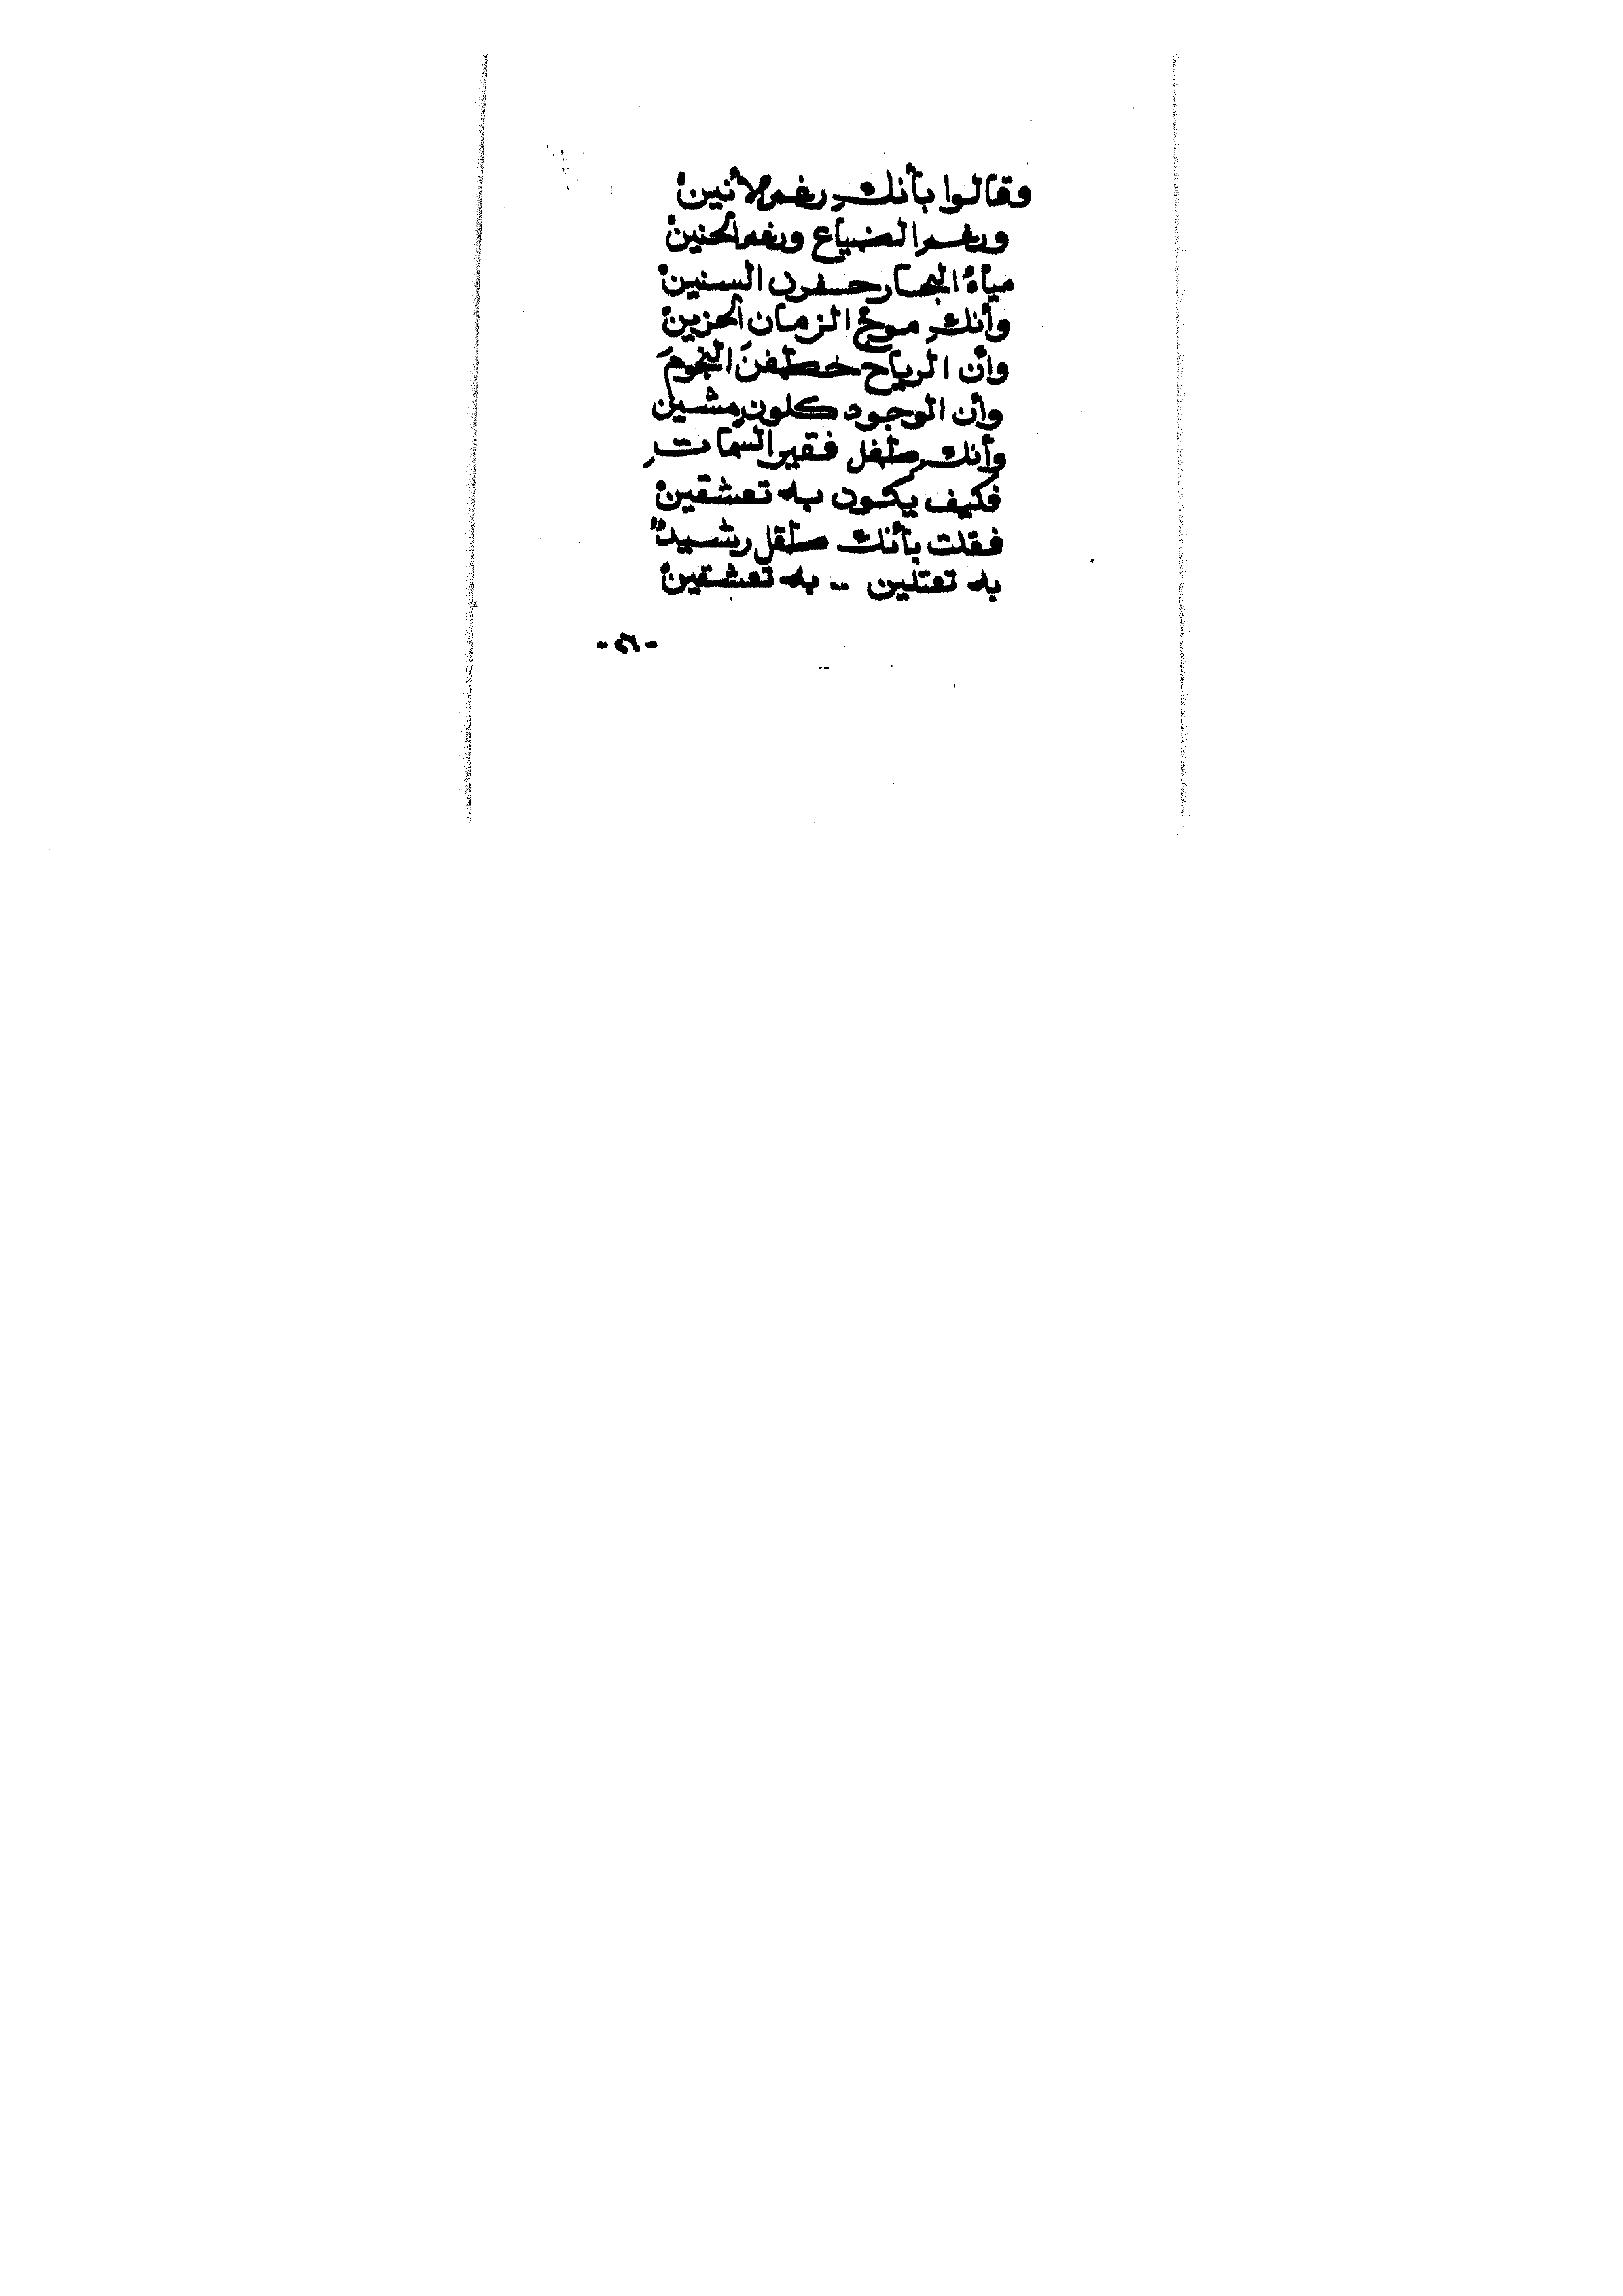 وقالوا بأنكِ رغم الأنينْ
ورغم الضياع ورغم الحنينْ
مياهُ البحار حفرن السنينْ
وأنكِ موجُ الزمان الحزينْ
وأن الرياح خطفنَ النجومَ
وأن الوجود كلونٍ مشين
وأنكِ طفل فقير السماتِ
فكيف يكون به تعشقينْ
فقلت بأنك طفل رشيدٌ
به تعتلين .. به تعشقينْ
- ٤٦ -